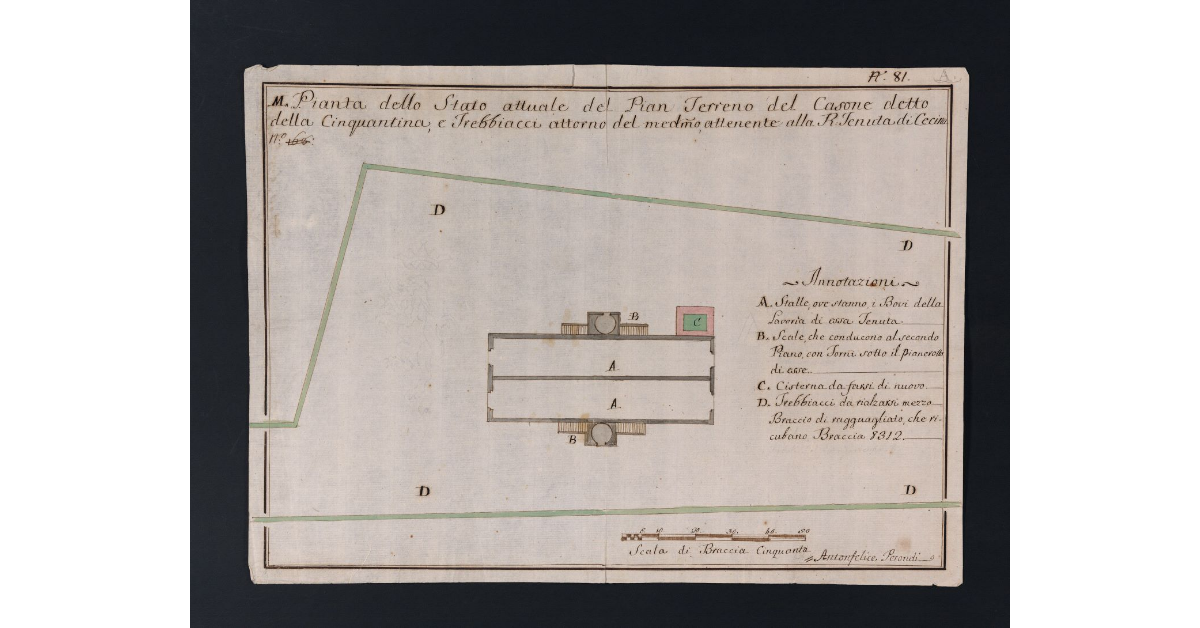 N.º 81. A.
M. Pianta dello Stato attuale del Pian Terreno del Casone detto
della Cinquantina, e Trebbiacci attorno del medmo, attenente alla R. Tenuta di Cecina
N.º 166.
D
D
Annotazioni
A. Stalle, ove stanno, i Bovi della
Lavoria di essa Tenuta
B. Scale, che conducono al secondo
Piano, con Forni sotto il pianerotto
di esse.
C. Cisterna da farsi di nuovo.
D. Trebbiacci da rialzarsi mezzo
Braccio di ragguagliato, che ri-
cubano Braccia 8312.
B
C
A
A
B
D
D
10 20 30 40 50
Scala di Braccia Cinquanta
Antonfelice Perondi